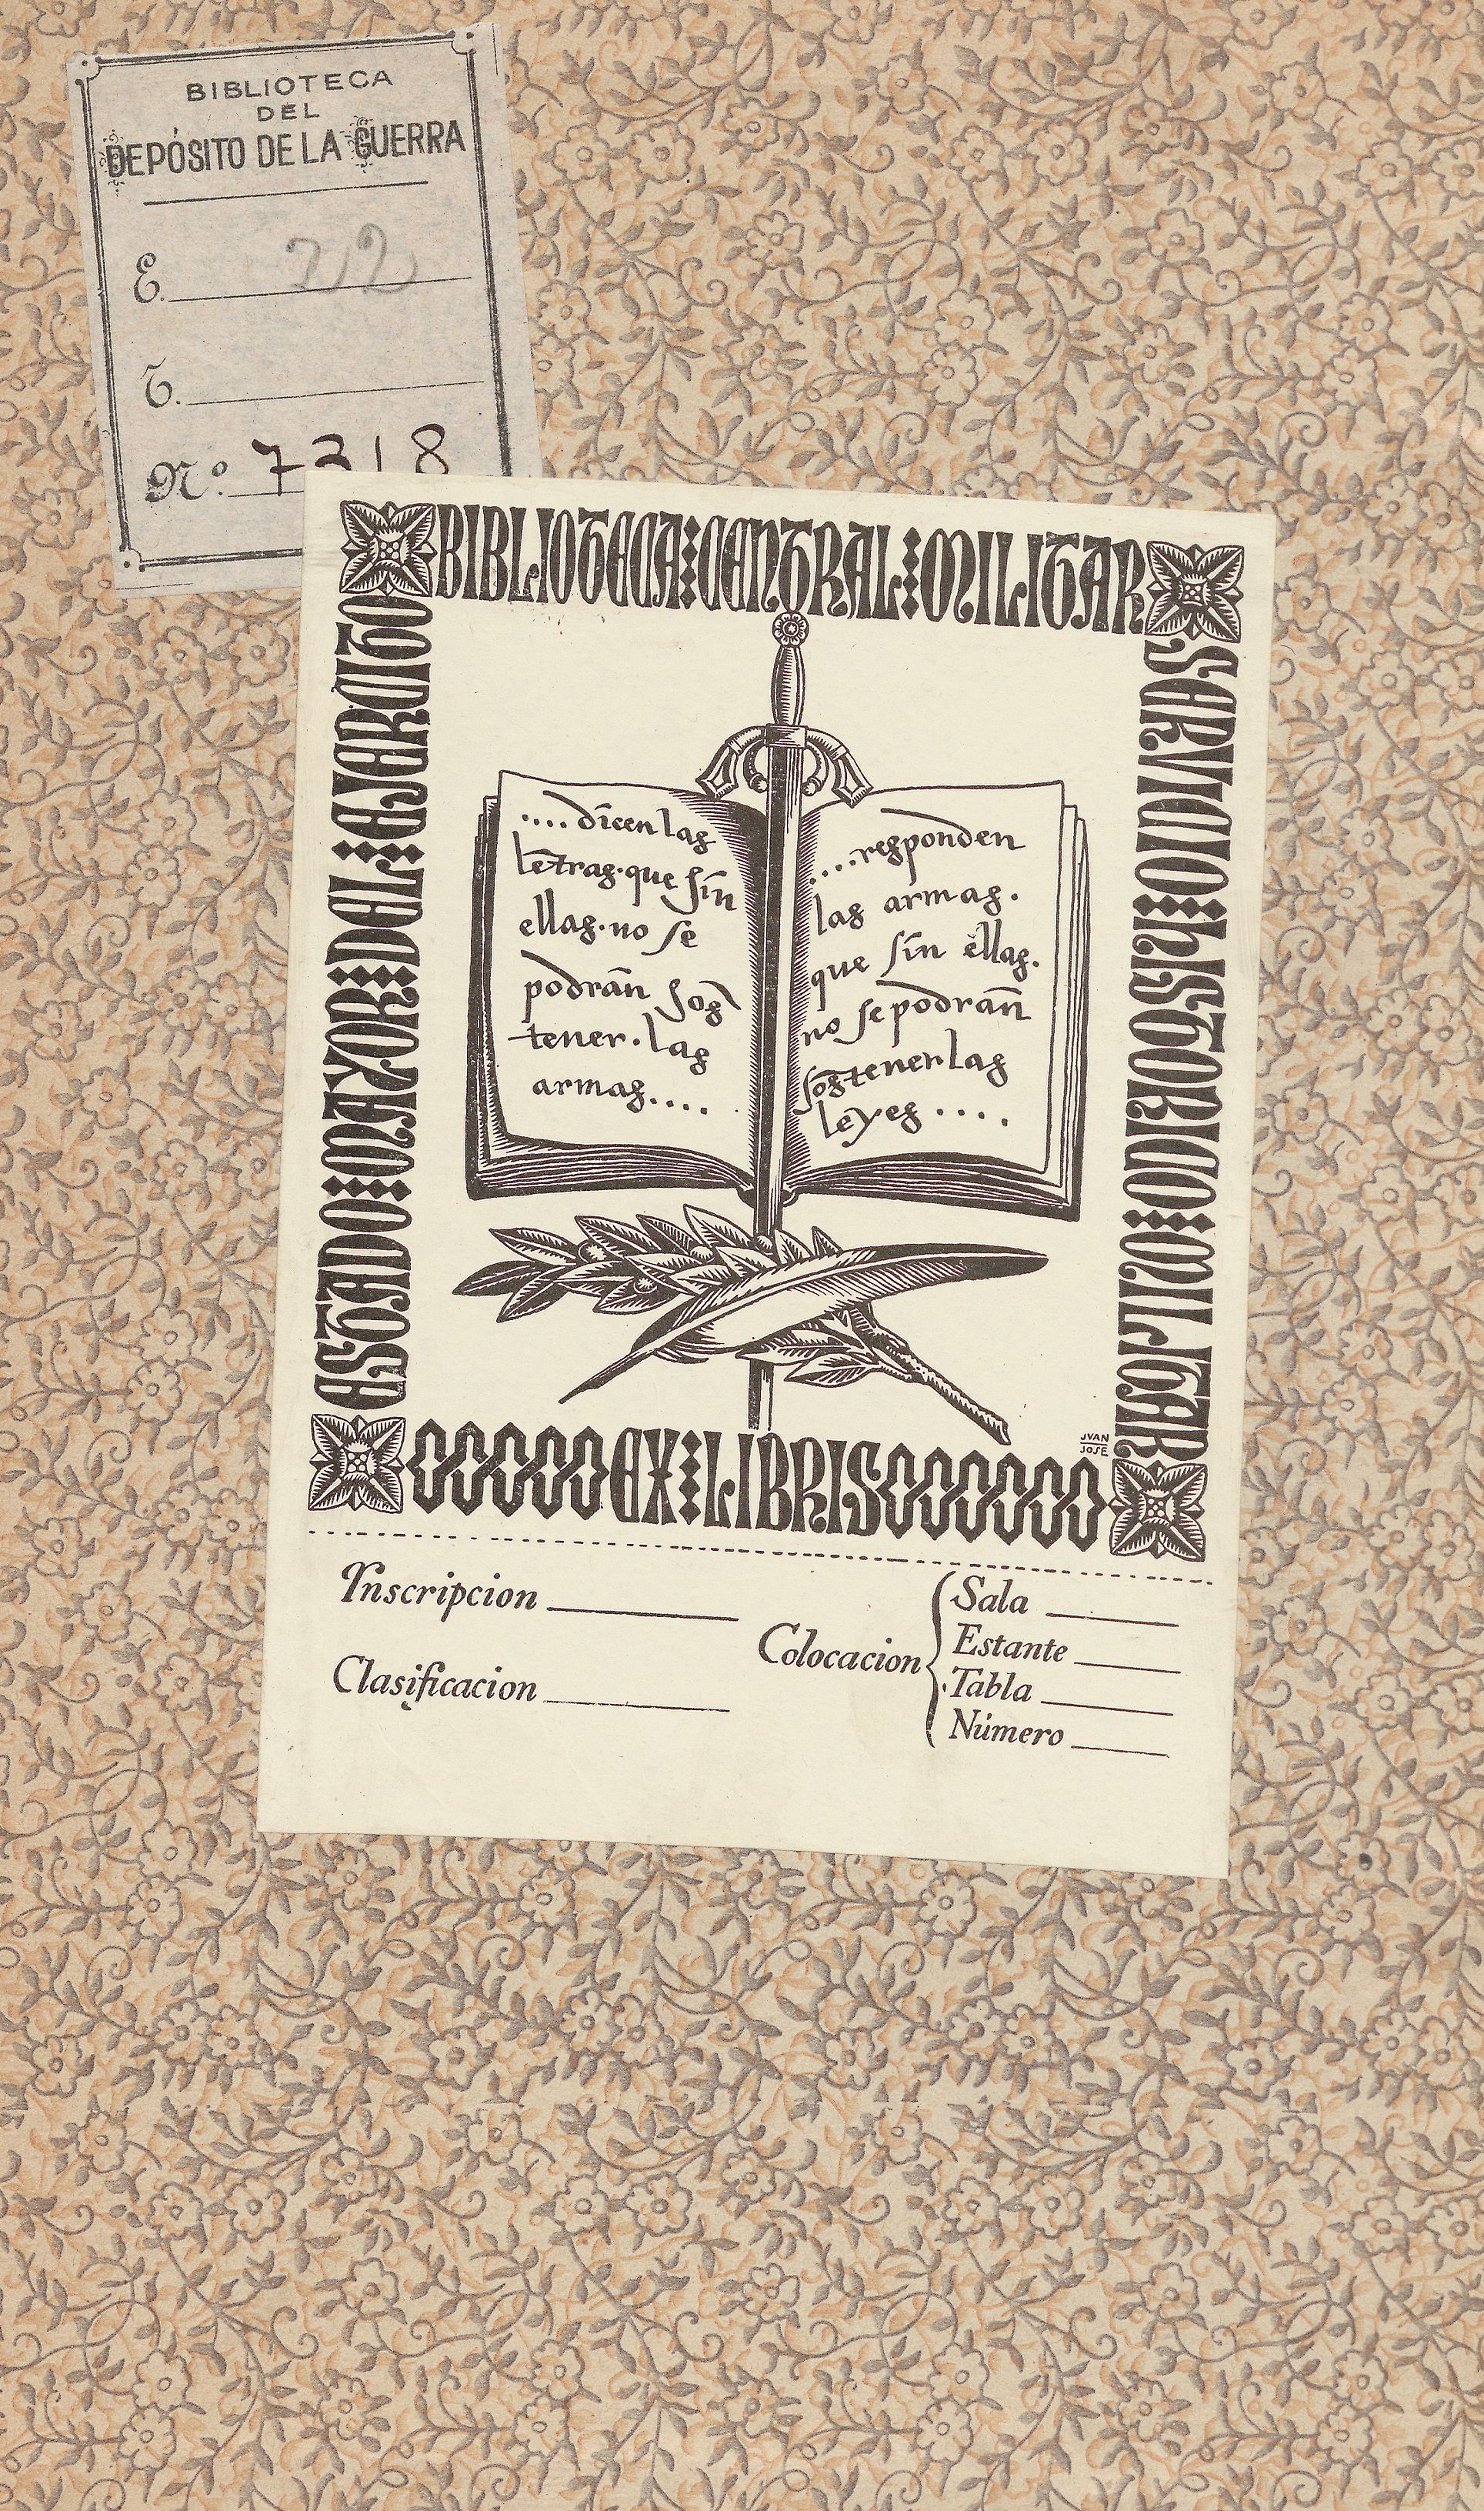 BIBLIOTECA
DEL
DEPÓSITO DE LA GUERRA
E. 22
T.
Nº. 7218
BIBLIOTECA CENTRAL MILITAR
ESTADO MAYOR DEL EJERCITO
SERVICIO HISTORICO MILITAR
.... dicen las
letras. que sin
ellas. no se
podrān sos
tener. las
armas....
....responden
las armas.
que sin ellas.
no se podrān
sostener las
leyes ....
JVAN
JOSE
EX LIBRIS
Inscripcion
Clasificacion
Colocacion
Sala
Estante
Tabla
Número